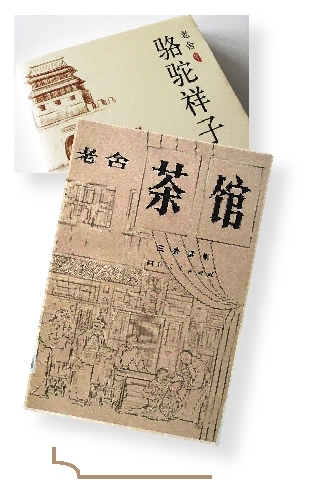 老舍
骆驼祥子
老舍
茶馆